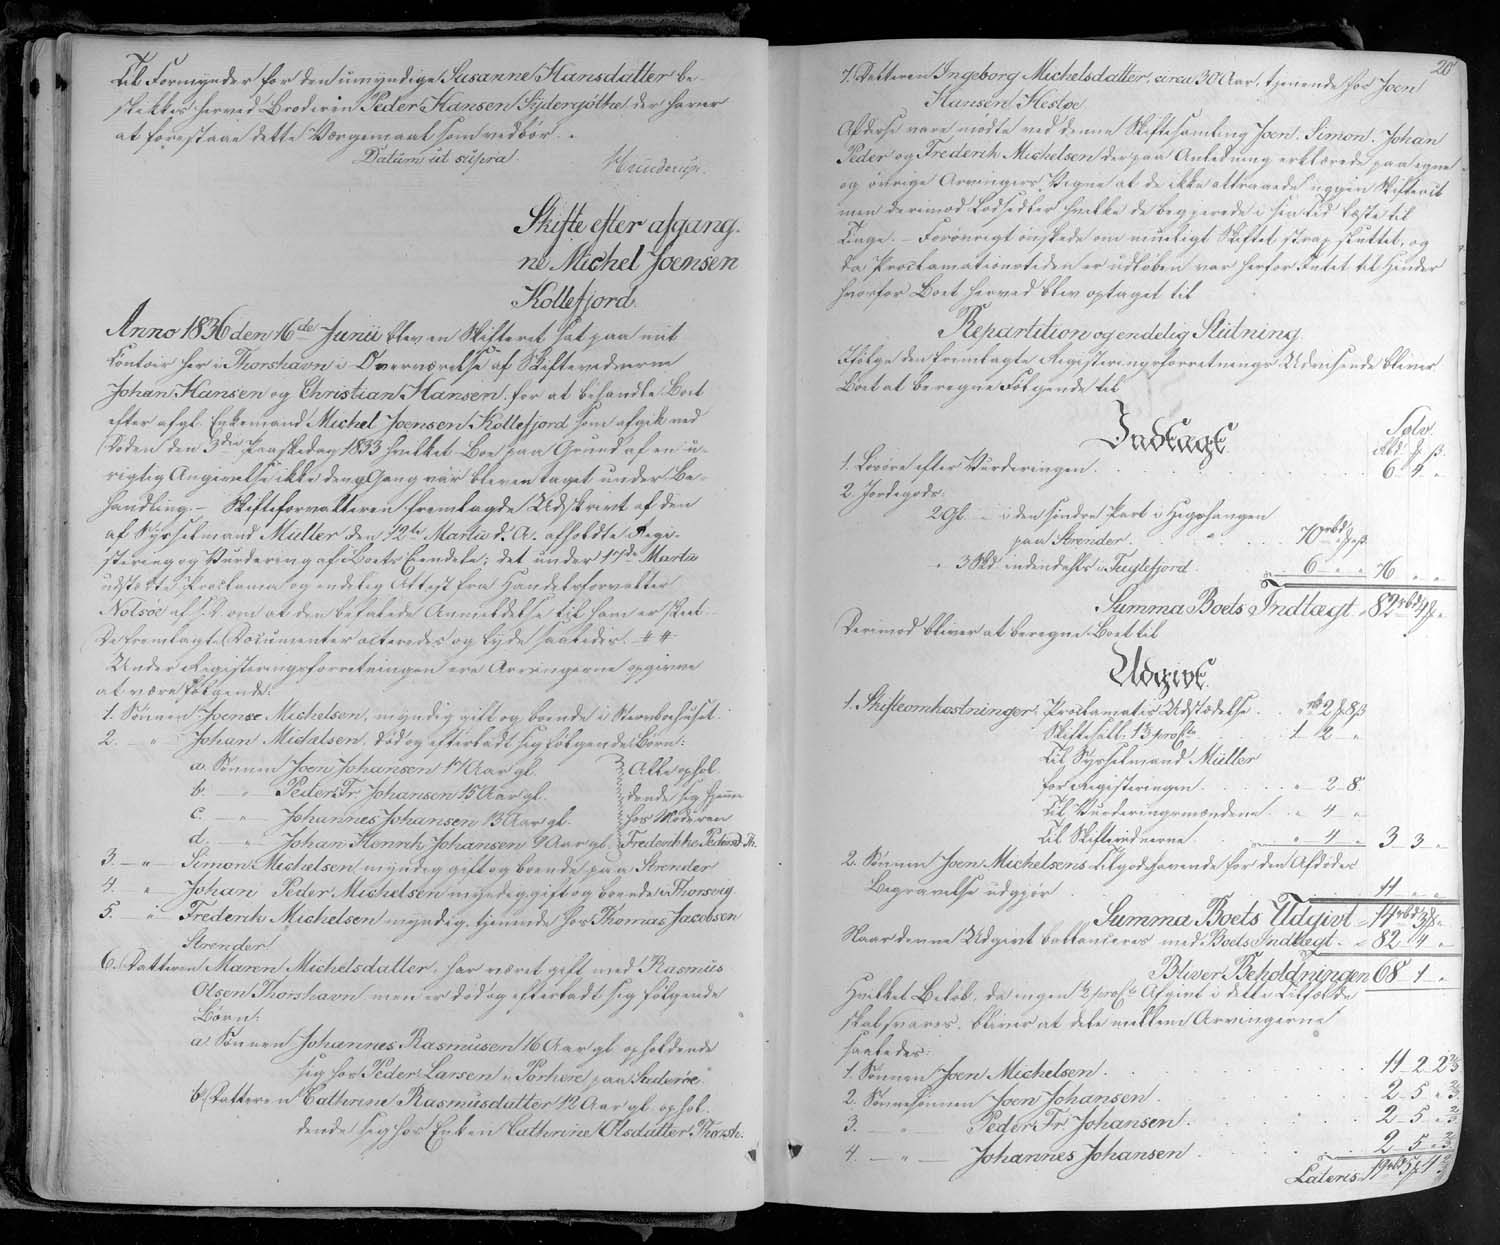 Til Formynder for den umyndige Susanne Hansdatter be-
skikkes herved Broderen Peder Hansen Sydergöthe, der haver
at forestaae dette Værgemaal som vedbör. -
Datum ut supra.
Skifte efter afgang-
ne Michel Joensen
Kollefjord.
Anno 1836 den 16de Junii blev en Skifteret sat paa mit
Contoir her i Thorshavn i Overværelse af Skiftevidnerne
Johan Hansen og Christian Hansen, for at behandle Boet
efter afgl. Enkemand Michel Joensen Kollefjord som afgik ved
Döden den 3die Paaskedag 1833 hvilket Boe paa Grund af en u-
rigtig Angivelse ikke dengang var bleven taget under Be-
handling. - Skifteforvalteren fremlagde Udskrivt af den
af Sysselmand Müller den 12te Martii d. A. afholdte Regi-
stering og Vurdering af Boets Eiendele; det under Martii
udstædte Proclama og endelig Attest fra Handelsforvalter
Nolsöe af om at den befalede Anmeldelse til ham er skeet. -
De fremlagte Documenter acteredes og lyde saaledes. ##
Under Registeringsforretningen ere Arvingerne opgivne
at være fölgende:
1. Sönnen Joen Michelsen, myndig gift og boende i
2. - " - Johan Michelsen, död og efterladt sig fölgende Börn:
a. Sönnen Joen Johansen 17 Aar gl. Alle ophol-
b. - " - Peder Fr. Johansen 15 Aar gl. dende sig hjemme
c. - " - Johannes Johansen 13 Aar gl. hos Moderen
d. - " - Johan Henrik Johansen 9 Aar gl. Frederikke
3. - " - Simon Michelsen myndig gift og boende paa Strender
4. - " - Johan Peder Michelsen myndig, gift og boende i Thorsvig
5. - " - Frederik Michelsen myndig, tjenende hos Thomas Jacobsen
Strender
6. Datteren Maren Michelsdatter, har været gift med Rasmus
Olsen Thorshavn, men er död og efterladt sig fölgende
Börn:
a. Sönnen Johannes Rasmusen 16 Aar gl. opholdende
sig hos Peder Larsen i Porkere paa Suderöe
b. Datteren Cathrine Rasmusdatter 12 Aar gl. ophol-
dende sig hos Enken Cathrine Olsdatter Thorsh.
20
7. Datteren Ingeborg Michelsdatter, circa 30 Aar, tjenende hos Joen
Hansen Hestöe
Af disse vare mödte ved denne Skiftesamling Joen, Simon, Johan
Peder og Frederik Michelsen der paa Anledning erklærede paa egne
og övrige Arvingers Vegne at de ikke attraaede nogen Skifteret
men derimod Lodsedler hvilke de begjerede i sin Tid læste til
Tinge. - Forövrigt önskede om mueligt Skiftet strax sluttet, og
da Proclamationstiden er udlöben var herfor Intet til Hinder
hvorfor Boet herved blev optaget til
Repartition og endelig Slutning.
Ifölge den fremlagte Registeringsforretnings Udvisende bliver
Boet at beregne Fölgende til
Indtægt.
Sölv.
Rbd. ß.
1. Lösöre efter Vurderingen . . . 6 - 4 - "
2. Jordegods:
2 Gl. - " i den sindre Part i Högshangen
paa Strender . . . 70 rbd
" 3 Skd. indendahls i Fuglefjord . . . 6 " " 76 " "
Summa Boets Indtægt 82 rbd 4
Derimod bliver at beregne Boet til
Udgivt.
1. Skifteomkostninger, Proclamatis Udstædelse . " 2 8ß
Skiftesall: 1 3 . . . 1 - 2 - "
Til Sysselmand Müller
for Registeringen . . . " - 2 - 8.
Til Vurderingsmændene . " 4 - "
Til Skiftevidnerne . . . " - 4 - " 3 - 3 - "
2. Sönnen Joen Michelsens tilgodehavende for den Afdödes
Begravelse udgjör . . . 11 - " - "
Summa Boets Udgivt 14 rbd 3
Naar denne Udgivt ballanceres med Boets Indtægt - 82 - 4 - "
Bliver Beholdningen 68 - 1 - "
Hvilket Belöb, da ingen Afgivt i dette Tilfælde
skal svares, bliver at dele mellem Arvingerne
saaledes:
1. Sönnen Joen Michelsen . . . 11 - 2 - 2 2/3
2. Sönnesönnen Joen Johansen . . . 2 - 5 - " 2/3
3. - " - Peder Fr. Johansen . . . 2 - 5 - " 2/3
4. - " - Johannes Johansen . . . 2 - 5 - " 2/3
Lateris 19 rbd 5 4